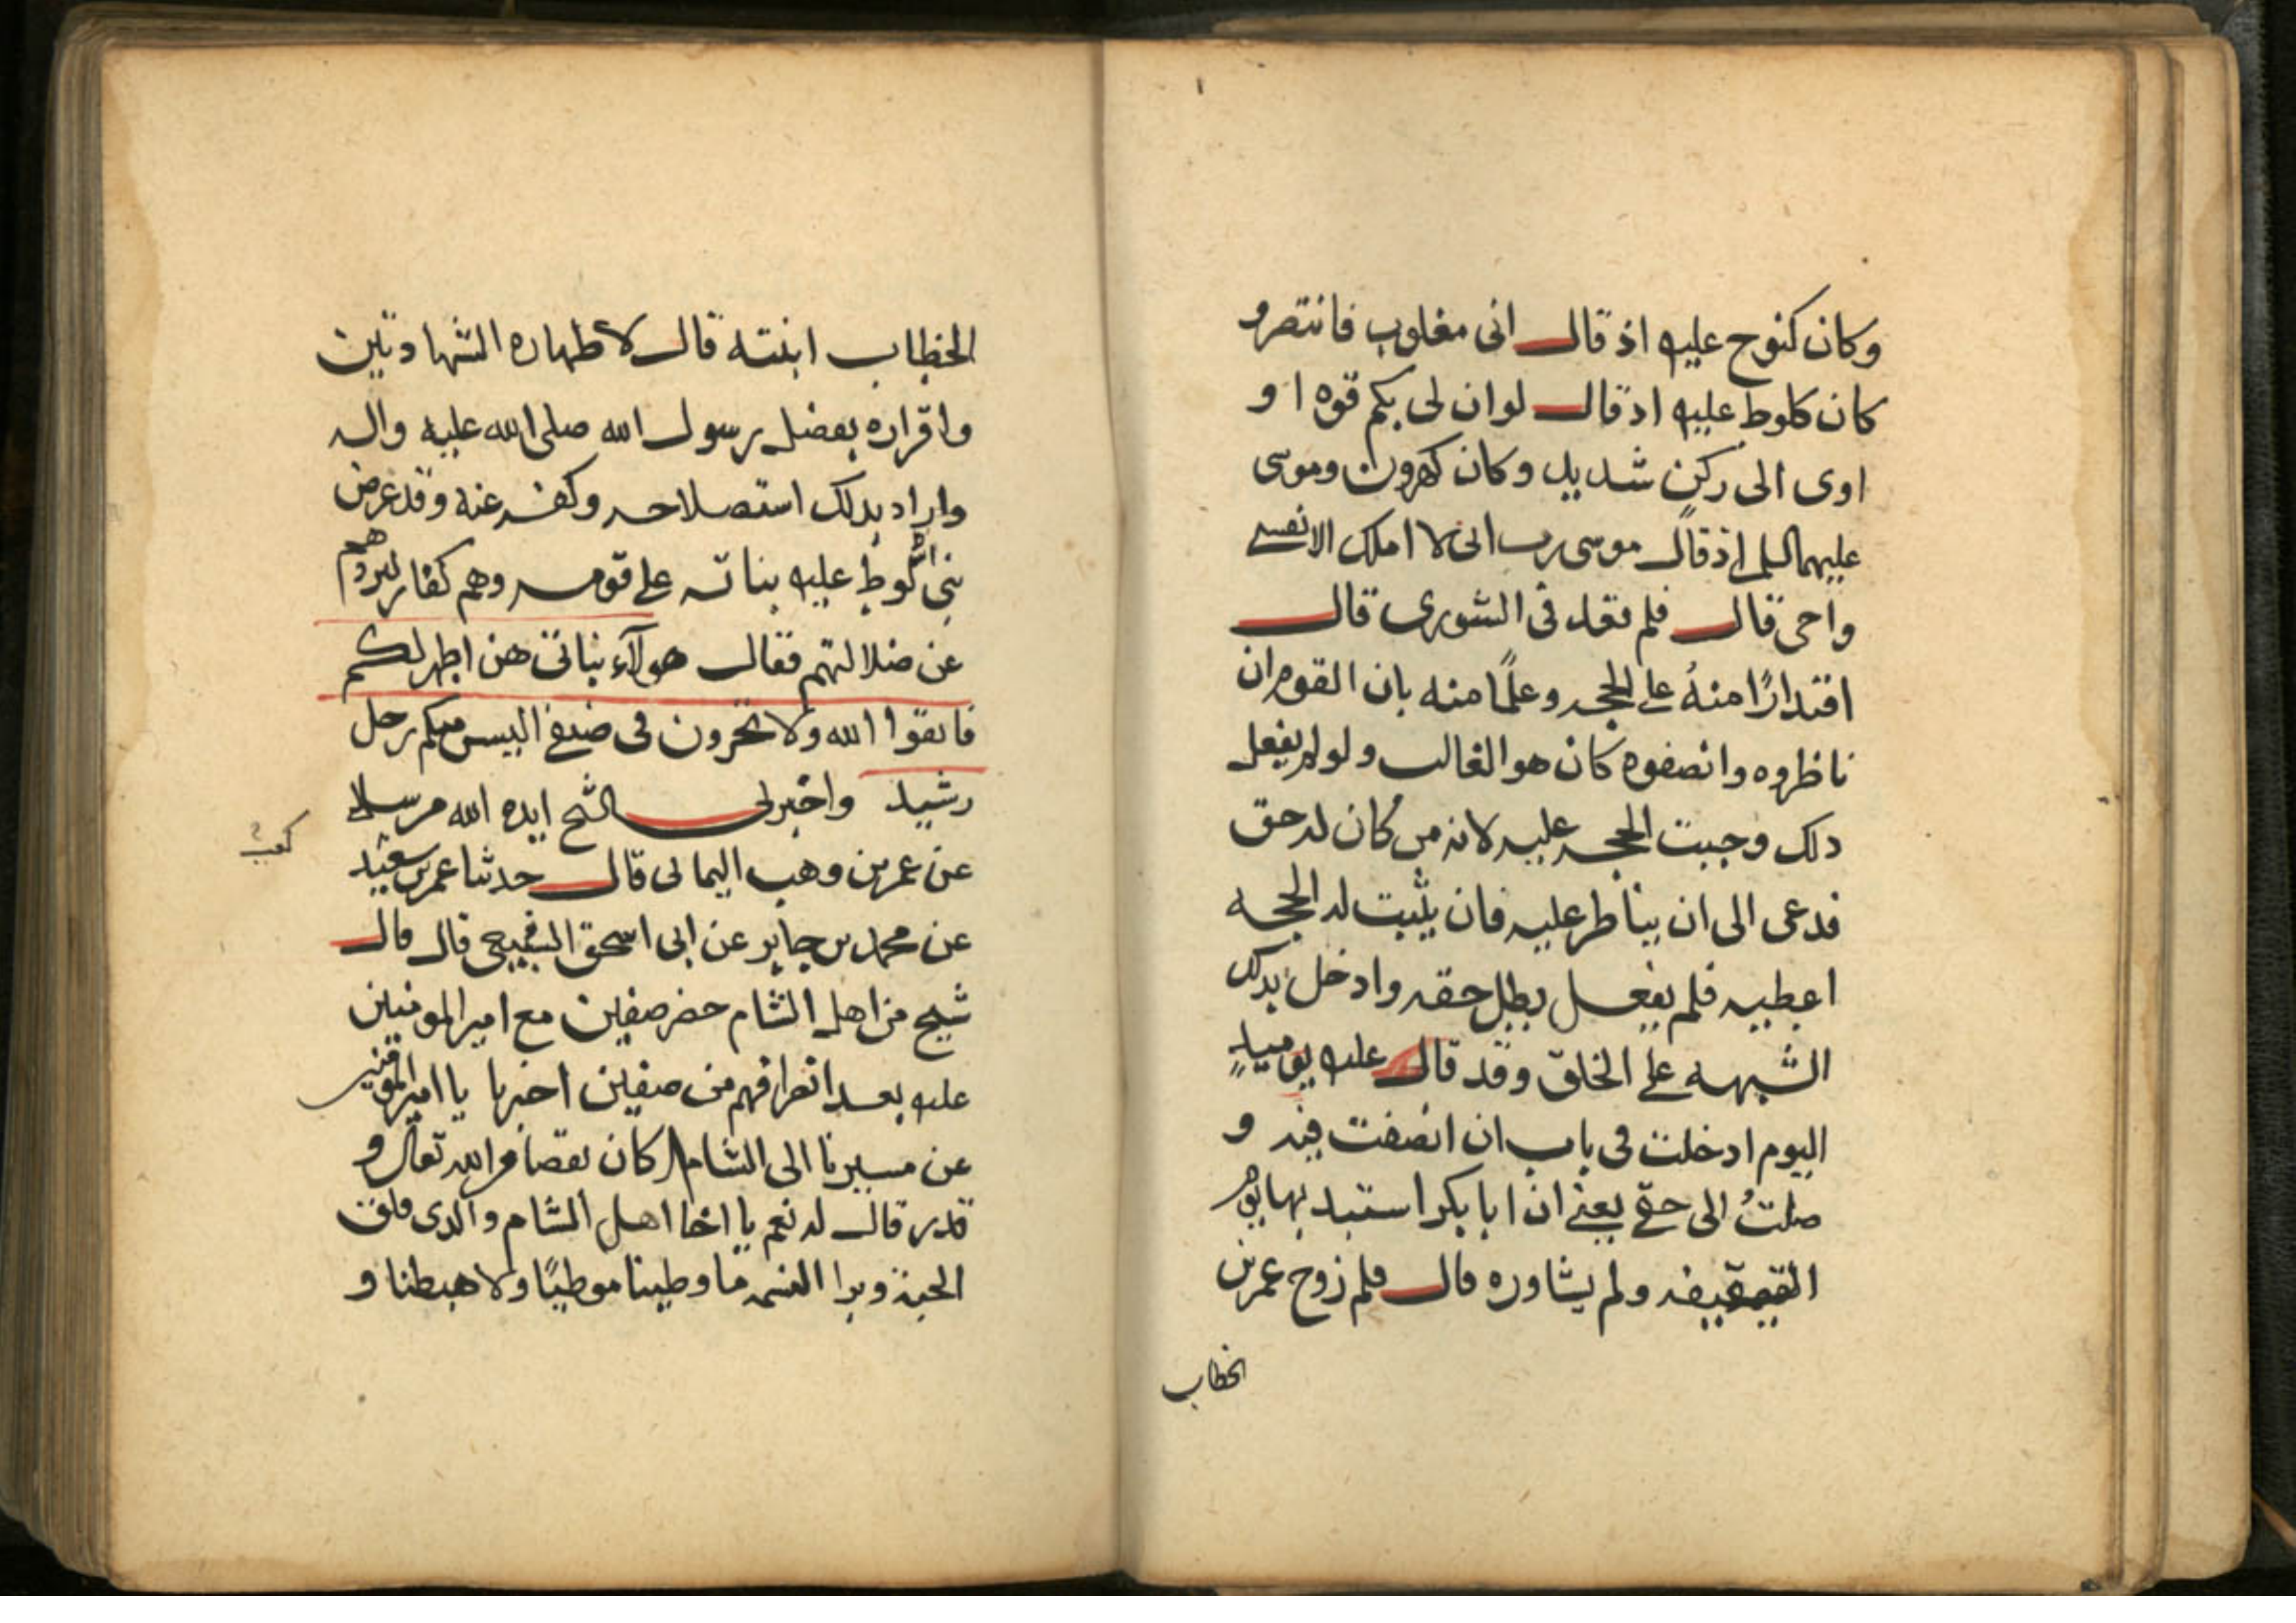 وكان كنوح عليه اذ قال انى مغلوب فانتصر و
كان كلوط عليه اد قال لو ان لى بكم قوه ا و
اوى الى ركن شديد وكان كهرون وموسى
عليهما السلم اذ قال موسى رب انى لا املك الا نفسى
واخى قال فلم قعد فى الشورى قال
اقتدارًا منهُ على الحجه وعلمًا منه بان القوم ان
ناظروه وانصفوه كان هو الغالب ولو لم يفعل
دلك وجبت الحجه عليه لانه من كان له حق
فدعى الى ان يناظر عليه فان يثبت له الحجه
اعطيه فلم يفعل بطل حقه وادخل بدلك
الشبهه على الخلق وقد قال عليه يوميدٍ
اليوم ادخلت فى باب ان انصفت فيه و
صلتُ الى حقى يعنى ان ابا بكر استبد بها يوم
السقيفه ولم يشاوره قال فلم زوج عمر بن
الخطاب
الخطاب ابنته قال لاظهاره الشهادتين
واقراره بفضل رسول الله صلى الله عليه واله
واراد بدلك استصلاحه وكفه عنه وقد عرض
نبى الله لوط عليه بناته على قومه وهم كفار ليردهم
عن ضلالتهم فقال هولآء بناتى هن اطهر لكم
فاتقوا الله ولا تخزون فى ضيفى اليس منكم رجل
رشيد واخبرنى الشيخ ايده الله مرسلا
عن عمر بن وهب اليمانى قال حدثنا عمر بن سعيد
عن محمد بن جابر عن ابى اسحق السبيعى قال قال
شيخ من اهل الشام حضر صفين مع امير المومنين
عليه بعد انصرافهم من صفين اخبرنا يا امير المومنين
عن مسيرنا الى الشام اكان بقضا من الله تعالى و
قدر قال له نعم يا اخا اهل الشام والدى فلق
الحبة وبرا النسمه ما وطينا موطيًا ولا هبطنا و